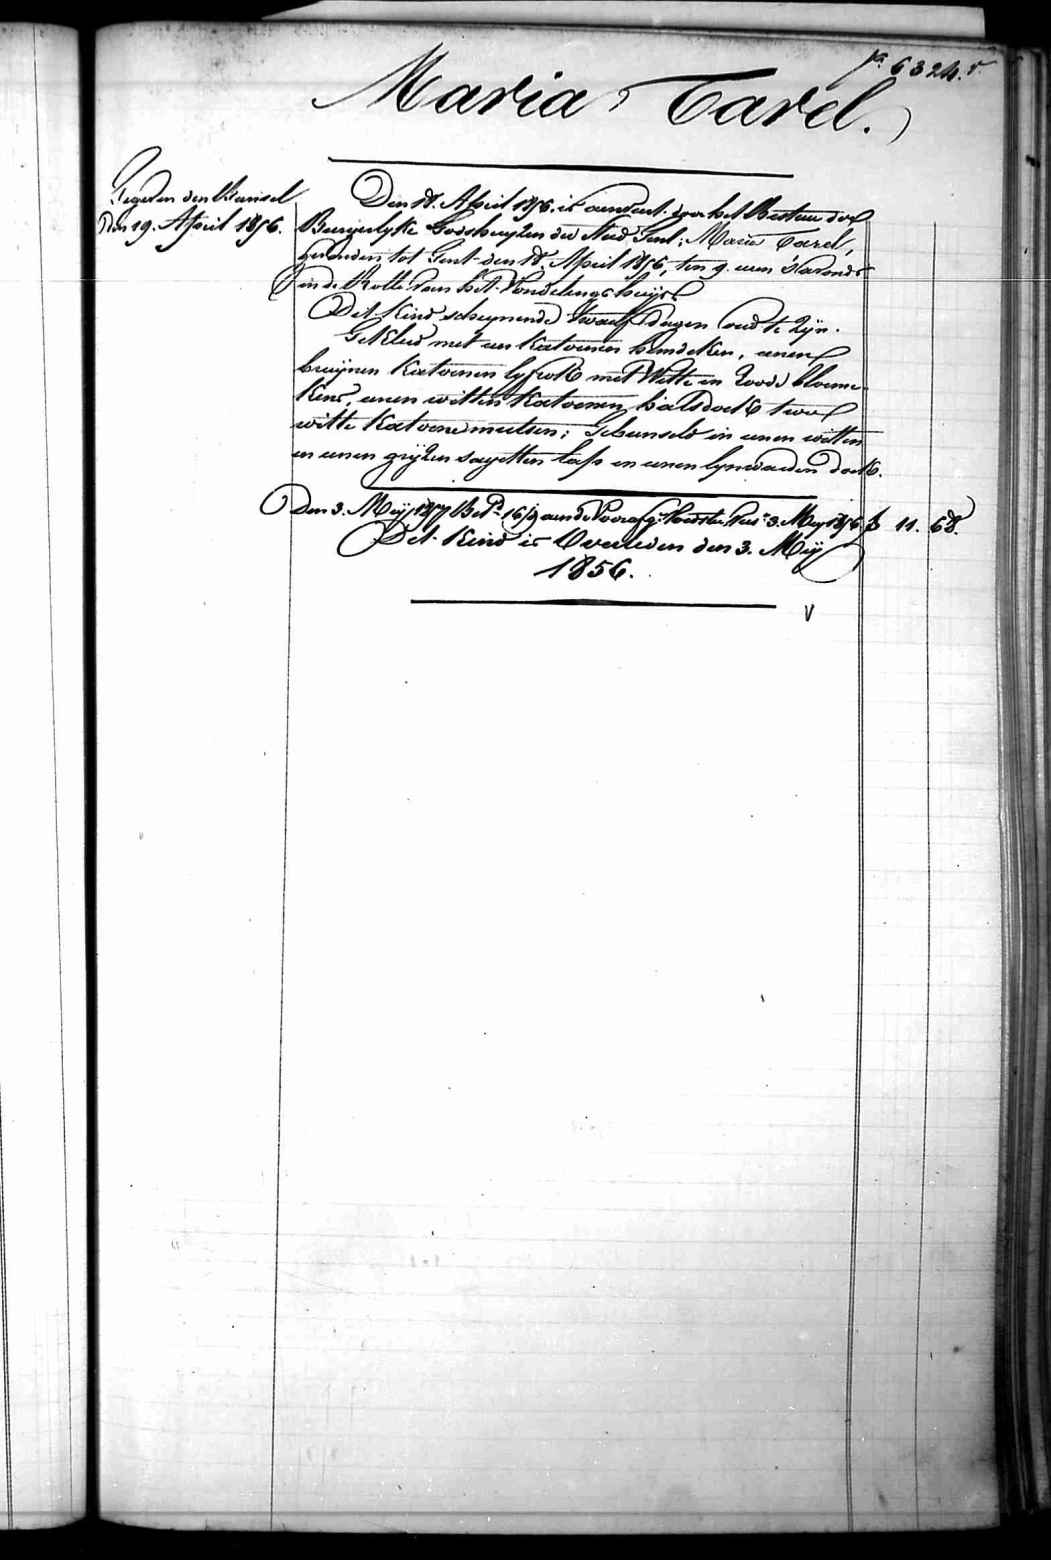 Nº 6324. r.
Maria Tarel.
Gegeven den Bunsel
Den 19. April 1856.
Den 18. April 1856. is aenveert. door het Bestuer der
Burgerlyke Godshuyzen der Stad Gent; Maria Tarel,
gevonden tot Gent den 18. April 1856, ten 9. uren 's avonds
in de Rolle van het Vondelingshuys
Dit Kind schynende twaelf dagen oud te Zyn.
Gekleed met een Katoenen hemdeken, eenen
bruynen Katoenen lyfrok met Witte en Roode bloeme-
kens, eenen witten Katoenen halsdoek twee
witte Katoene mutsen; Gebunseld in eenen witten
en eenen gryzen sayetten laps en eenen lynwaeden doek.
Den 3. Mey 1857 Bet. 16/9 aende Voorafg. Voedster Sus. 3. Mey 1856 f 11. 68.
Dit Kind is Overleden den 3. Mey
1856.
V